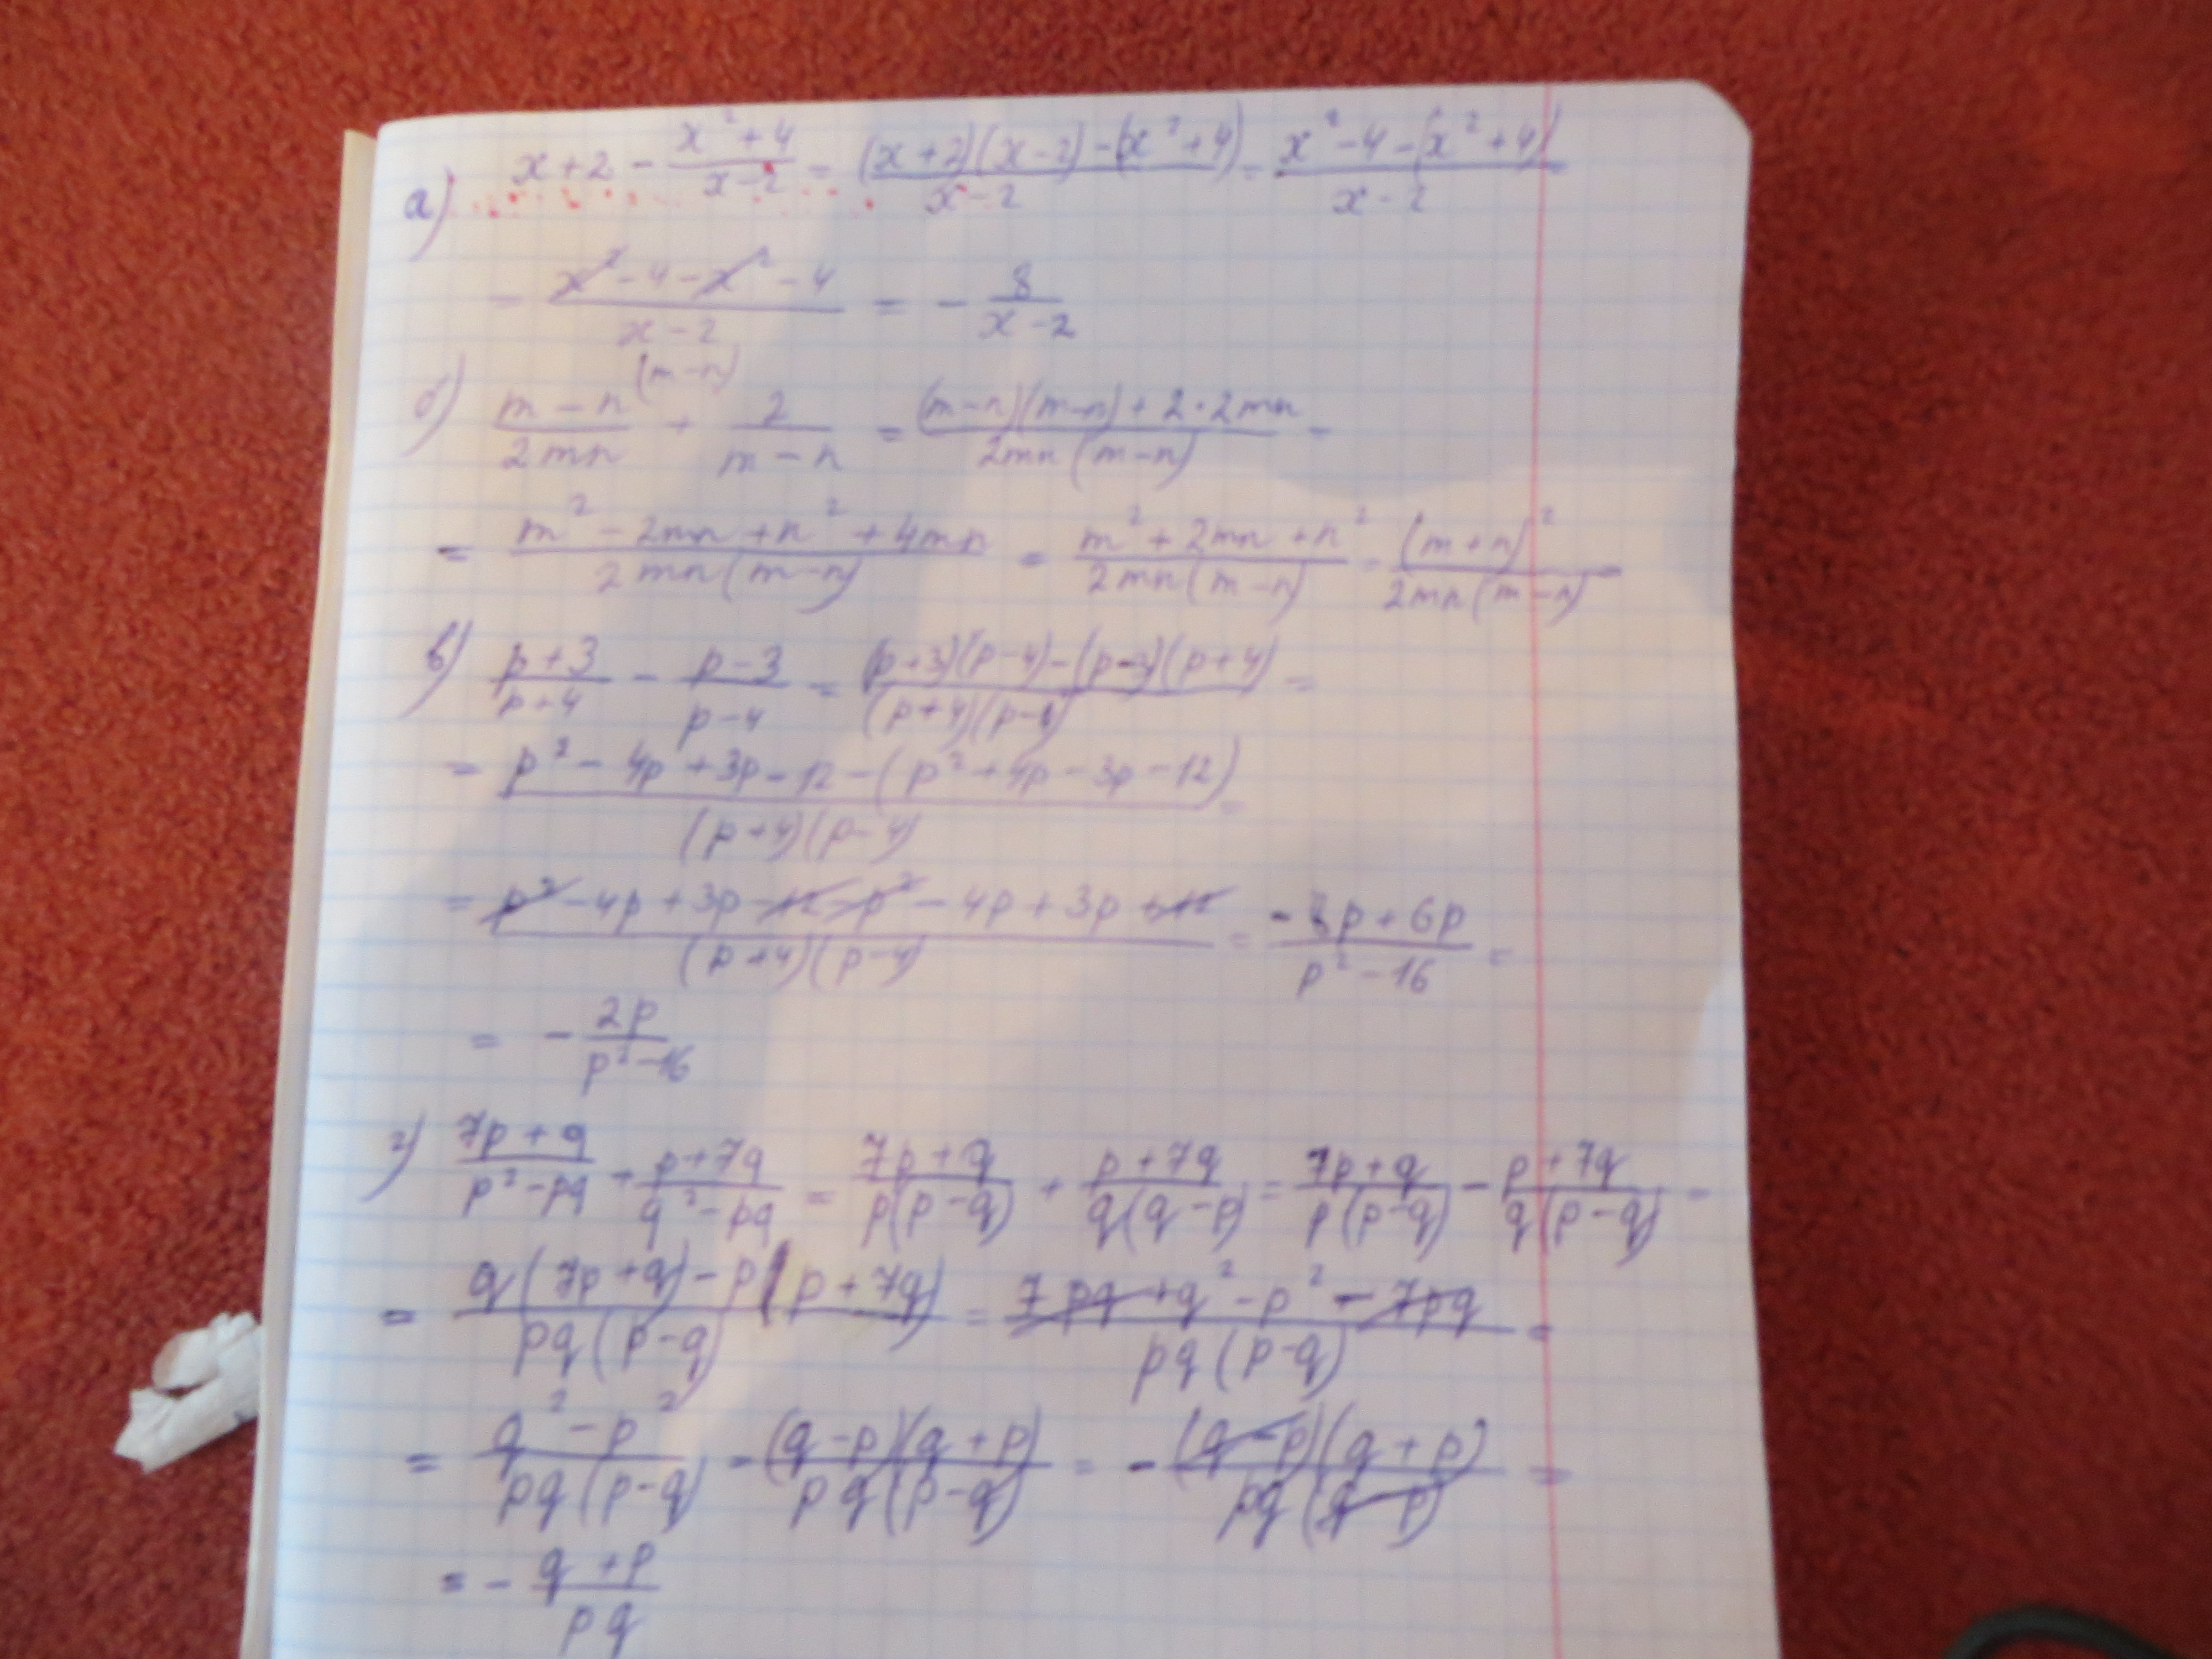 а) x+2 - \frac{x^2+4}{x-2} = \frac{(x+2)(x-2)-(x^2+4)}{x-2} = \frac{x^2-4-(x^2+4)}{x-2}
= \frac{x^2-4-x^2-4}{x-2} = -\frac{8}{x-2}
б) \frac{m-n}{2mn}^{(m-n)} + \frac{2}{m-n} = \frac{(m-n)(m-n)+2·2mn}{2mn(m-n)} =
= \frac{m^2-2mn+n^2+4mn}{2mn(m-n)} = \frac{m^2+2mn+n^2}{2mn(m-n)} = \frac{(m+n)^2}{2mn(m-n)}
в) \frac{p+3}{p+4} - \frac{p-3}{p-4} = \frac{(p+3)(p-4)-(p-3)(p+4)}{(p+4)(p-4)} =
= \frac{p^2-4p+3p-12-(p^2+4p-3p-12)}{(p+4)(p-4)} =
= \frac{p^2-4p+3p-12-p^2-4p+3p+12}{(p+4)(p-4)} = \frac{-8p+6p}{p^2-16} =
= -\frac{2p}{p^2-16}
г) \frac{7p+q}{p^2-pq} + \frac{p+7q}{q^2-pq} = \frac{7p+q}{p(p-q)} + \frac{p+7q}{q(q-p)} = \frac{7p+q}{p(p-q)} - \frac{p+7q}{q(p-q)} =
= \frac{q(7p+q)-p(p+7q)}{pq(p-q)} = \frac{7pq+q^2-p^2-7pq}{pq(p-q)} =
= \frac{q^2-p^2}{pq(p-q)} = \frac{(q-p)(q+p)}{pq(p-q)} = -\frac{(q-p)(q+p)}{pq(q-p)} =
= -\frac{q+p}{pq}